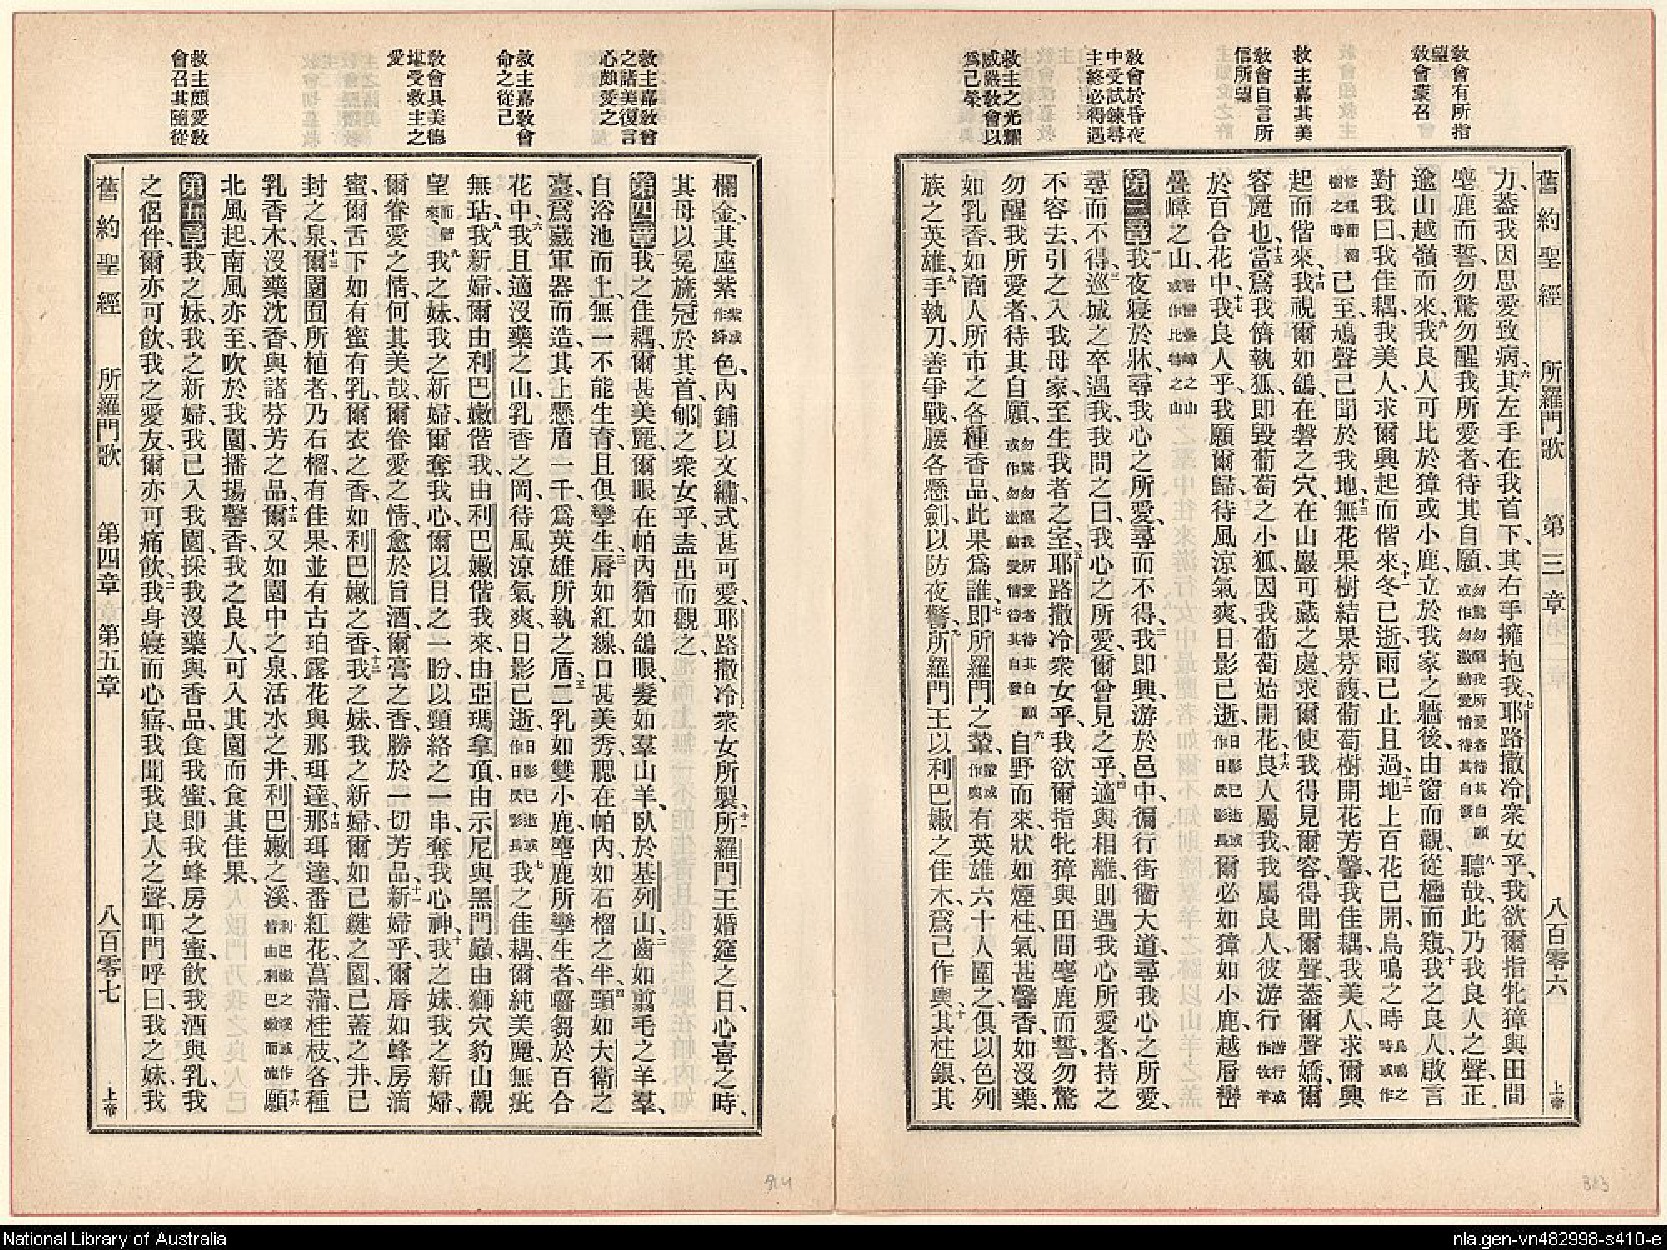 教會有所指望
教會蒙召
教主嘉其美
教會自言所信所望
教會於昏夜中受試鍊尋主終必得遇
救主之光耀威嚴教會以爲己榮
舊約聖經 所羅門歌 第三章 八百零六 上帝
力、蓋我因思愛致病、六其左手在我首下、其右手擁抱我、七耶路撒冷衆女乎、我欲爾指牝獐與田間
麀鹿而誓、勿驚勿醒我所愛者、待其自願、勿驚勿醒我所愛者待其自願或作勿激動愛情待其自發八聽哉、此乃我良人之聲、正
逾山越嶺而來、九我良人可比於獐或小鹿、立於我家之牆後、由窗而觀、從櫺而窺、十我之良人啟言
對我曰、我佳耦、我美人、求爾興起而偕來、十一冬已逝、雨已止且過、十二地上百花已開、鳥鳴之時鳥鳴之時或作
修理葡萄樹之時已至、鳩聲已聞於我地、十三無花果樹結果芬馥、葡萄樹開花芳馨、我佳耦、我美人、求爾興
起而偕來、十四我視爾如鴿、在磐之穴、在山巖可藏之處、求爾使我得見爾容、得聞爾聲、蓋爾聲嬌、爾
容麗也、十五當爲我儕執狐、卽毀葡萄之小狐、因我葡萄始開花、十六良人屬我、我屬良人、彼游行游行或作牧羊
於百合花中、十七我良人乎、我願爾歸、待風涼氣爽、日影已逝、日影已逝或作日昃影長爾必如獐如小鹿、越層巒
疊嶂之山、層巒疊嶂之山或作比特之山
第三章一我夜寢於牀、尋我心之所愛、尋而不得、二我卽興、游於邑中、徧行街衢大道、尋我心之所愛、
尋而不得、三巡城之卒遇我、我問之曰、我心之所愛、爾曾見之乎、四適與相離、則遇我心所愛者、持之
不容去、引之入我母家、至生我者之室、五耶路撒冷衆女乎、我欲爾指牝獐與田間麀鹿而誓、勿驚
勿醒我所愛者、待其自願、勿驚勿醒我所愛者待其自願或作勿激動愛情待其自發六自野而來、狀如煙柱、氣甚馨香、如沒藥、
如乳香、如商人所市之各種香品、此果爲誰、七卽所羅門之輦、輦或作輿有英雄六十人圍之、俱以色列
族之英雄、八手執刀、善爭戰、腰各懸劍、以防夜警、九所羅門王以利巴嫩之佳木、爲己作輿、十其柱銀、其
救主嘉教會之諸美復言心頗愛之
救主嘉教會命之從己
教會具美德堪受救主之愛
救主頗愛教會召其隨從
欄金、其座紫紫或作絳色、內鋪以文繡、式甚可愛、耶路撒冷衆女所製、十一所羅門王婚筵之日、心喜之時、
其母以冕旒冠於其首、郇之衆女乎、盍出而觀之、
第四章一我之佳耦、爾甚美麗、爾眼在帕內猶如鴿眼、髮如羣山羊、臥於基列山、二齒如翦毛之羊羣、
自浴池而上、無一不能生育、且俱孿生、三脣如紅線、口甚美秀、腮在帕內、如石榴之半、四頸如大衛之
臺、爲巍軍器而造、其上懸盾一千、爲英雄所執之盾、五二乳如雙小鹿、麀鹿所孿生者、囓芻於百合
花中、六我且適沒藥之山、乳香之岡、待風涼氣爽、日影已逝、日影已逝或作日昃影長七我之佳耦、爾純美麗、無疵
無玷、八我新婦、爾由利巴嫩偕我、由利巴嫩偕我來、由亞瑪拿頂、由示尼與黑門巔、由獅穴豹山觀
望、而來九我之妹、我之新婦、爾奪我心、爾以目之一盼、以頸絡之一串、奪我心神、十我之妹、我之新婦、
爾眷愛之情、何其美哉、爾眷愛之情、愈於旨酒、爾膏之香、勝於一切芳品、十一新婦乎、爾脣如蜂房滴
蜜、爾舌下如有蜜有乳、爾衣之香、如利巴嫩之香、十二我之妹、我之新婦、爾如已鍵之園、已蓋之井、已
封之泉、十三爾園囿所植者、乃石榴、有佳果、並有古珀露花與那珥達、十四那珥達、番紅花、菖蒲、桂枝、各種
乳香木、沒藥、沈香、與諸芬芳之品、十五爾又如園中之泉、活水之井、利巴嫩之溪、利巴嫩之溪或作皆由利巴嫩而流十六願
北風起、南風亦至、吹於我園、播揚馨香、我之良人、可入其園而食其佳果、
第五章一我之妹、我之新婦、我已入我園、採我沒藥與香品、食我蜜、卽我蜂房之蜜、飲我酒與乳、我
之侶伴、爾亦可飲、我之愛友、爾亦可痛飲、二我身寢而心寤、我聞我良人之聲、叩門呼曰、我之妹、我
舊約聖經 所羅門歌 第四章 第五章 八百零七 上帝
National Library of Australia
nla.gen-vn482998-s410-e